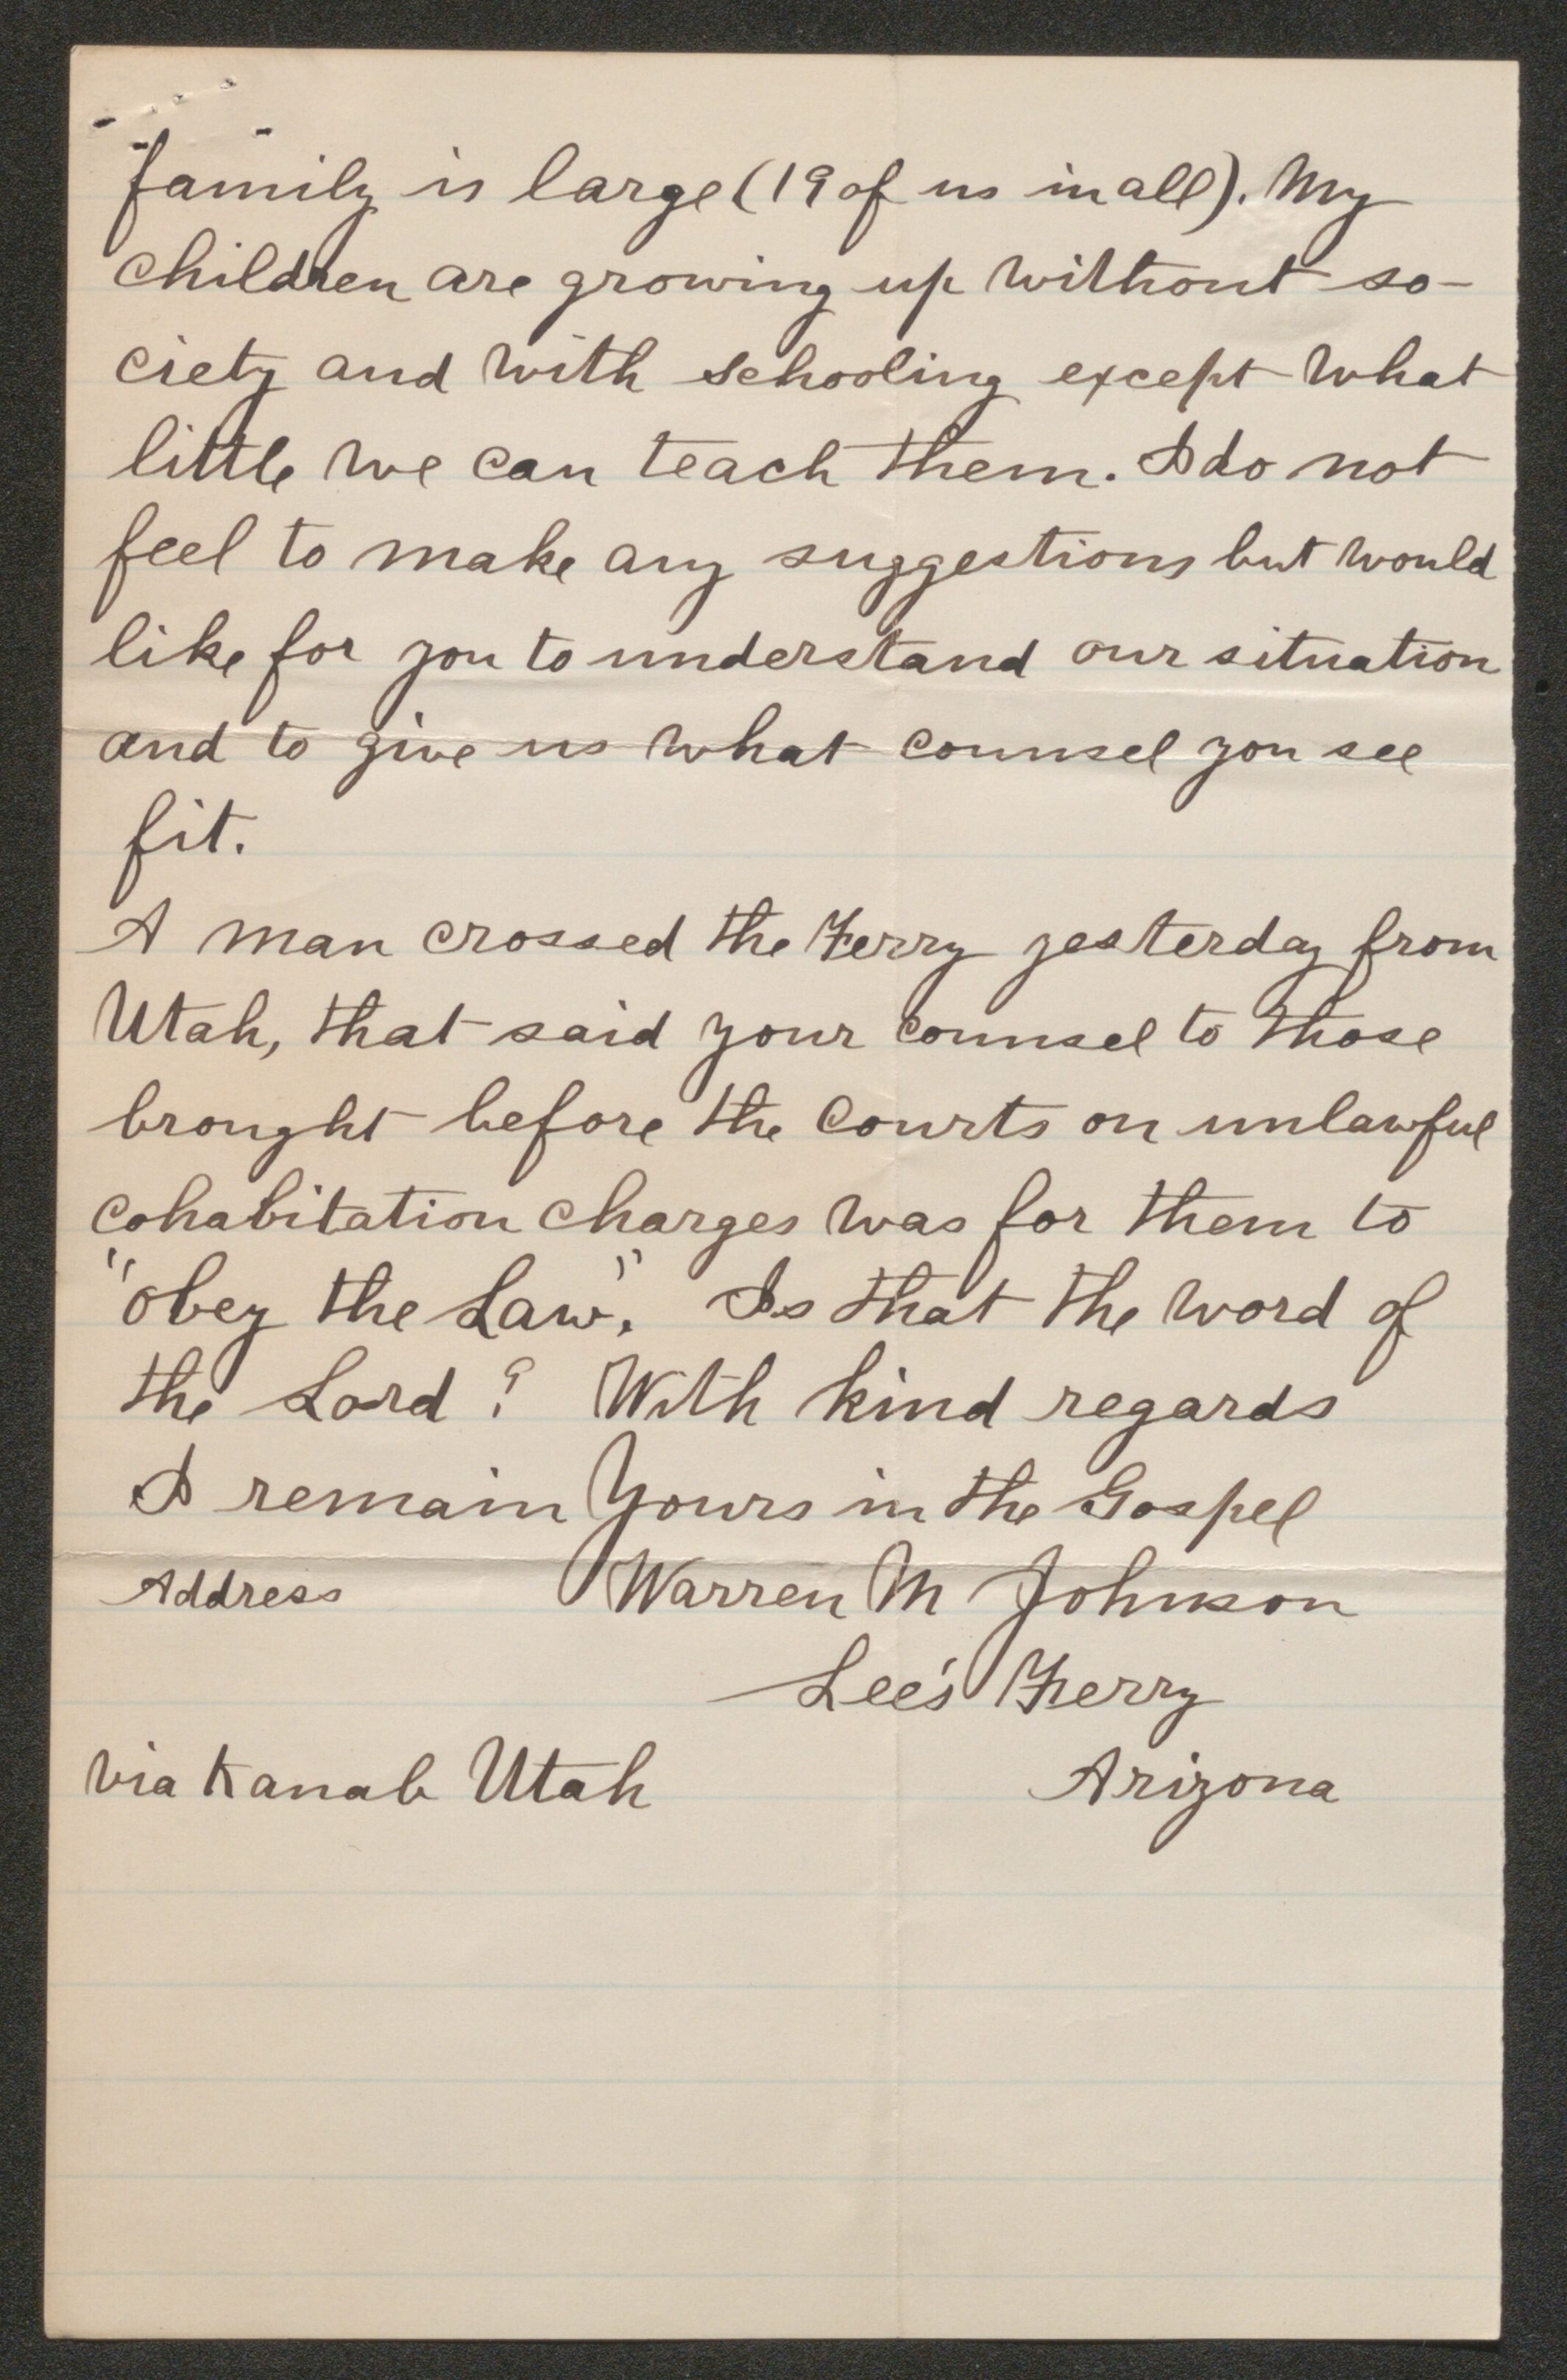 family is large (19 of us in all). My
children are growing up without so-
ciety and with schooling except what
little we can teach them. I do not
feel to make any suggestions but would
like for you to understand our situation
and to give us what counsel you see
fit.
A man crossed the Ferry yesterday from
Utah, that said your counsel to those
brought before the Courts on unlawful
cohabitation charges was for them to
"obey the Law". Is that the word of
the Lord? With kind regards
I remain Yours in the Gospel
Address Warren M Johnson
Lee's Ferry
via Kanab Utah Arizona